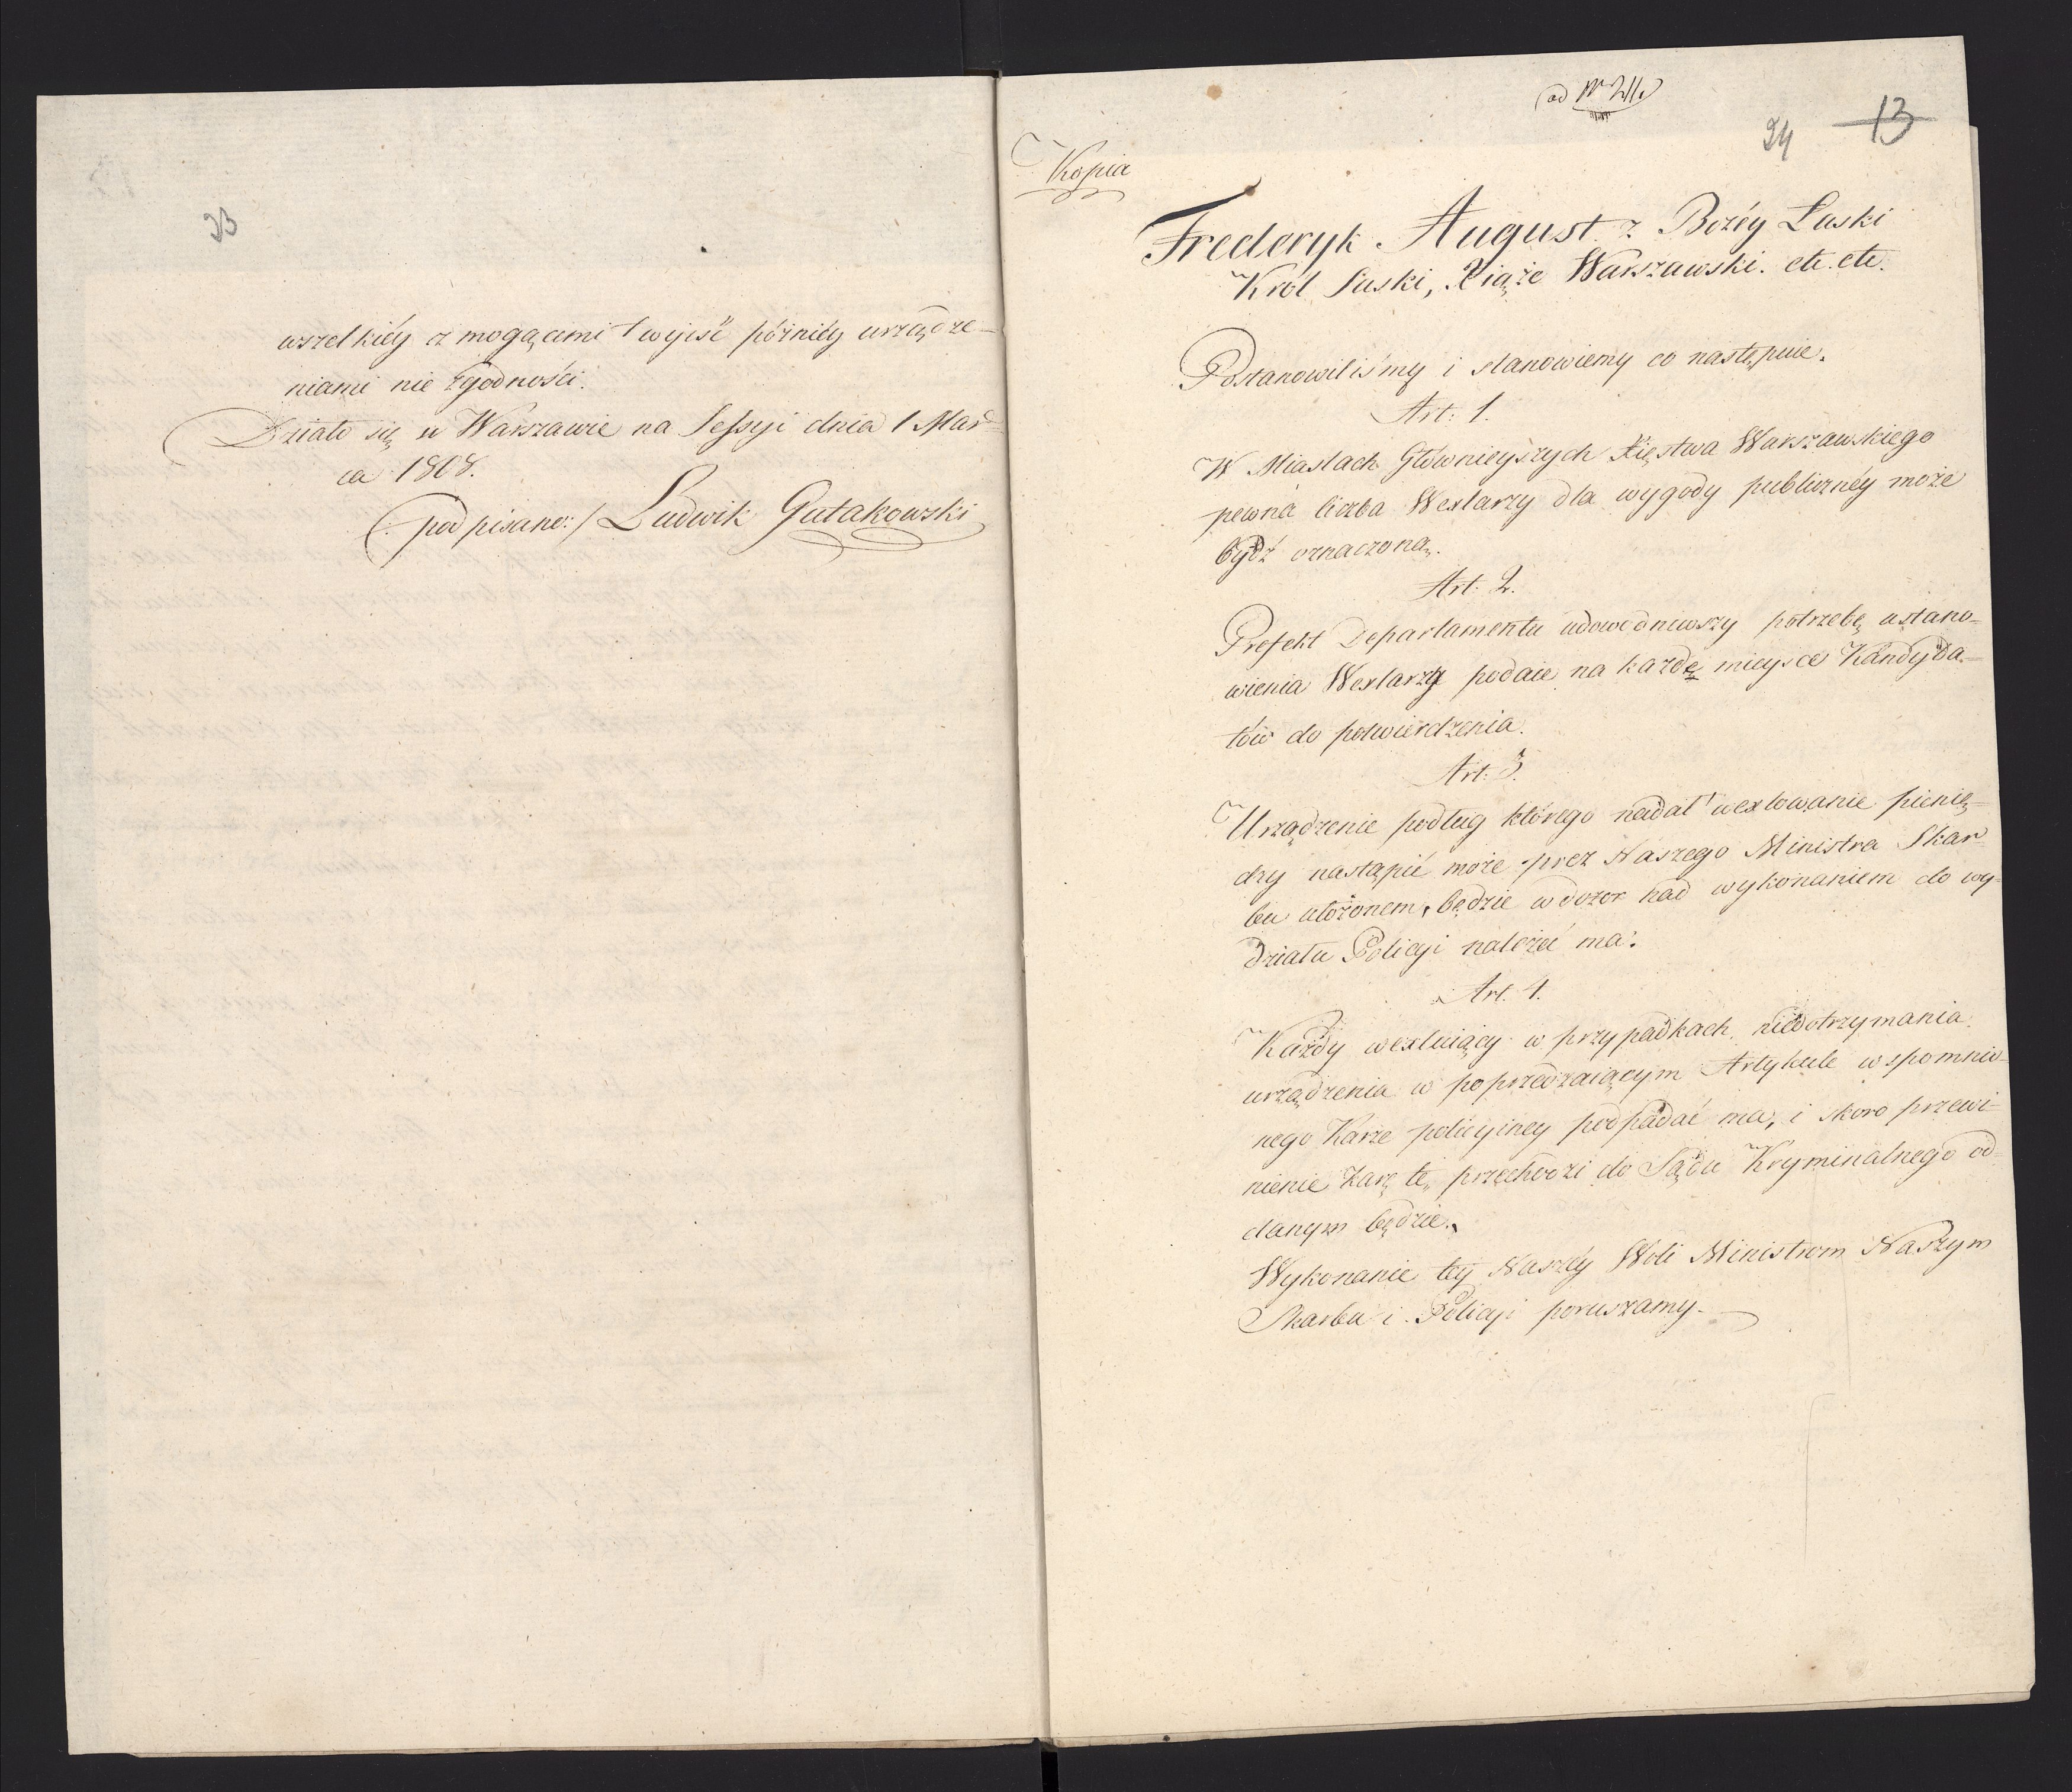 93
wszelkiéy z mogącemi wyjść późniéy urządze-
niami nie zgodności.
Działo się w Warszawie na Sessyi dnia 1 Mar-
ca 1808.
(: podpisano:/ Ludwik Gutakowski
ad Nr 211.
94 13
Kopia
Frederyk August z Bożéy Łaski
Król Saski, Xiąże Warszawski. etc. etc.
Postanowiliśmy i stanowiemy co następuie.
Art: 1.
W Miastach Główniejszych Xięstwa Warszawskiego
pewna liczba Wexlarzy dla wygody publicznéy może
bydź oznaczoną.
Art: 2.
Prefekt Departamentu udowodniwszy potrzebę ustano-
wienia Wexlarzy podaie na każde mieysce Kandyda-
tów do potwierdzenia.
Art: 3.
Urządzenie podług którego nadal wexlowanie pienię-
dzy nastąpić może prez Naszego Ministra Skar-
bu ułożonem, będzie a dozor nad wykonaniem do wy-
działu Policyi należeć ma.
Art. 4.
Każdy wexluiący w przypadkach niedotrzymania
urządzenia w poprzedzaiącym Artykule wspomnio-
nego Karze policyiney podpadać ma, i skoro przewi-
nienie karę tę przechodzi do Sądu Kryminalnego od-
danym będzie.
Wykonanie téy Naszéy Woli Ministrom Naszym
Skarbu i Policyi poruszamy.